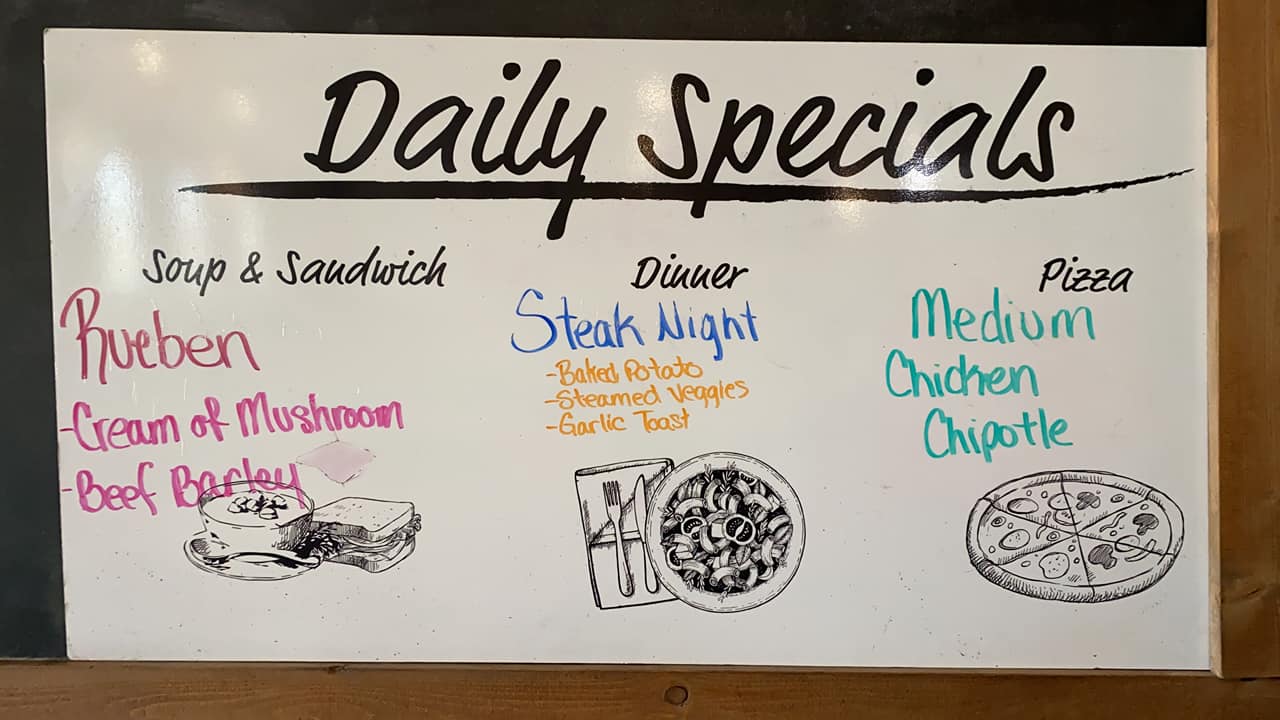 Daily Specials
Soup & Sandwich
Rueben
-Cream of Mushroom
-Beef Barley
Dinner
Steak Night
-Baked Potato
-Steamed Veggies
-Garlic Toast
Pizza
Medium
Chicken
Chipotle